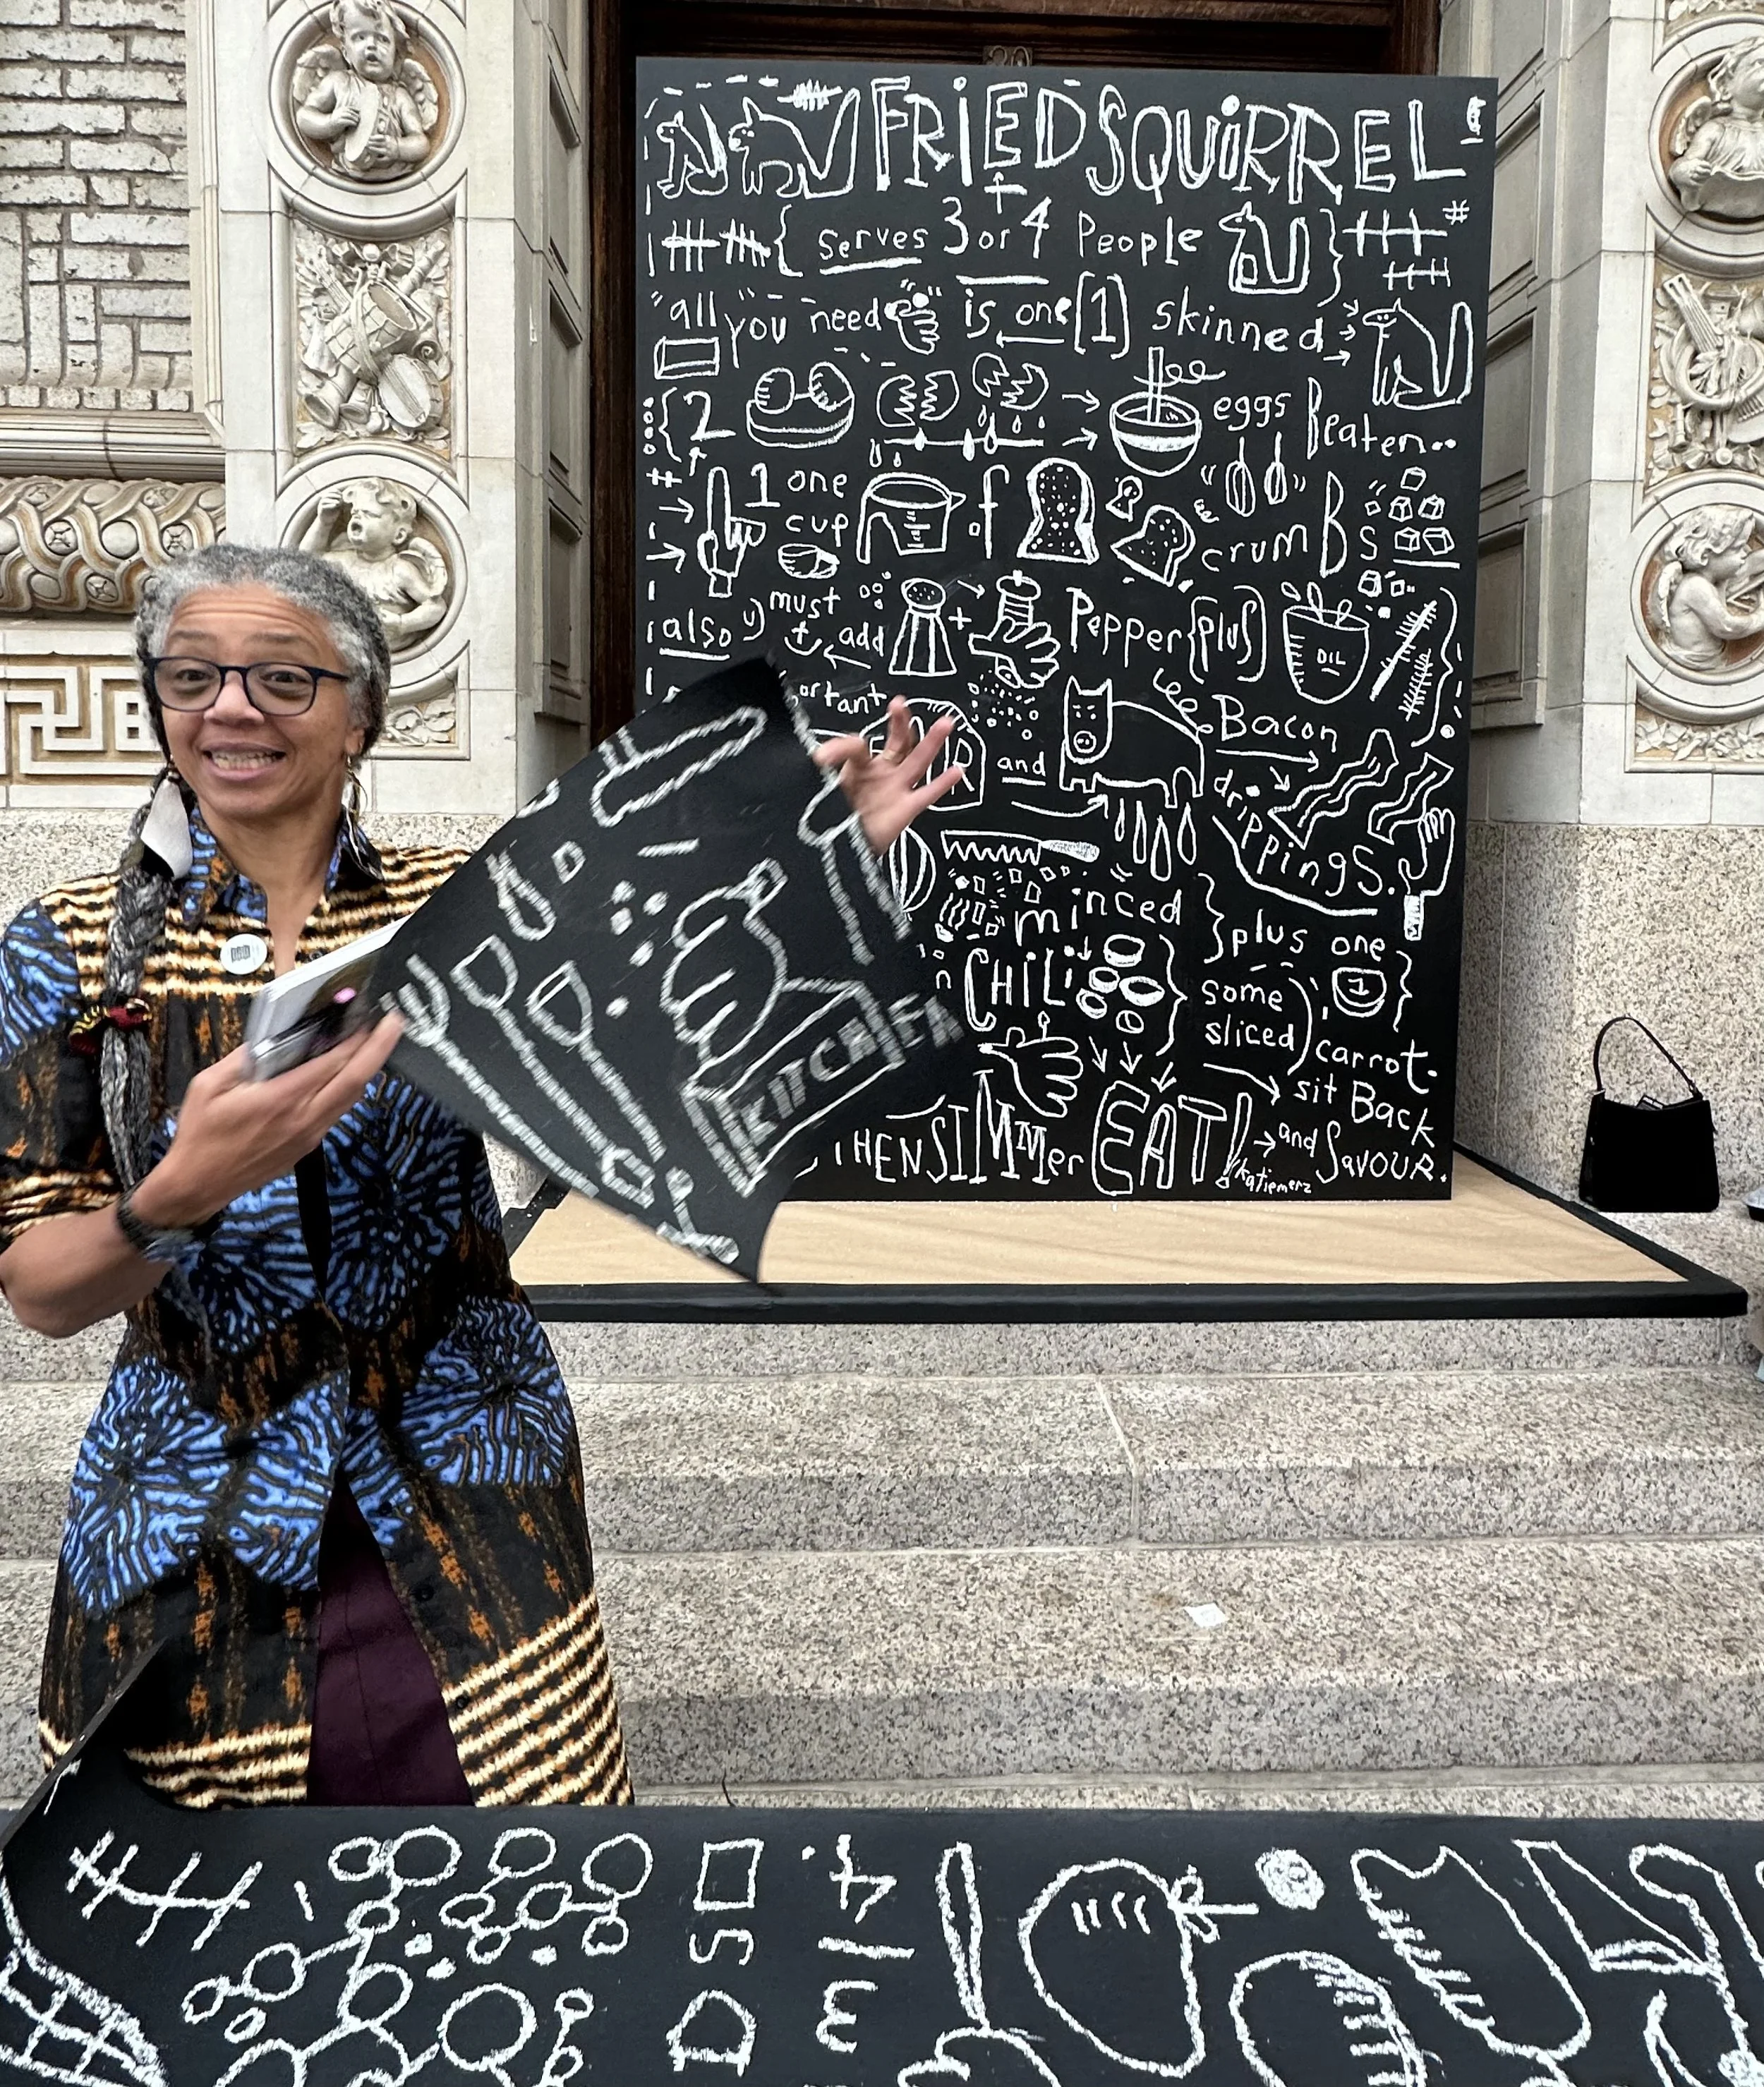 20
FRiED SQUiRREL
Serves 3 or 4 People
"all you need is one [1] skinned
2 eggs Beaten..
1 one cup of crumBs
also must add + Pepper {plus} OIL
ortant
and Bacon drippings.
minced } plus one
CHiLi some sliced carrot.
1
sit Back
THEN SIMMer EAT! and SavOUR.
katiemerz
KITCH